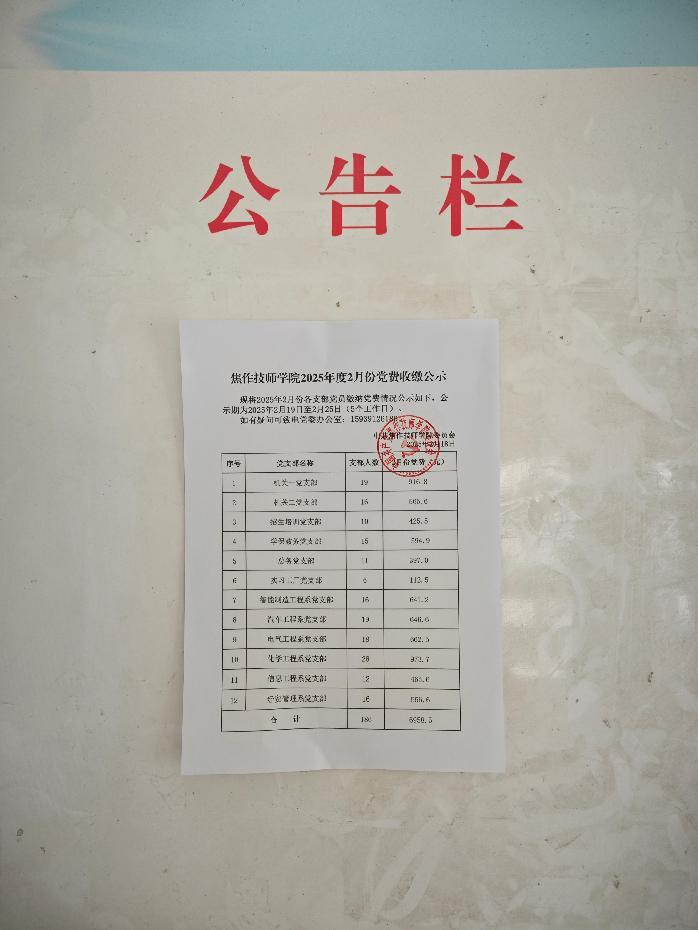 公告栏
焦作技师学院2025年度2月份党费收缴公示
现将2025年2月份各支部党员缴纳党费情况公示如下,公
示期为2025年2月19日至2月25日(5个工作日)。
如有疑问可致电党委办公室:
中共焦作技师学院委员会
2025年2月18日
序号 党支部名称 支部人数 2月份党费(元)
1 机关一党支部 19 916.8
2 机关二党支部 16 565.6
3 招生培训党支部 10 425.5
4 学保教务党支部 15 594.9
5 总务党支部 11 397.0
6 实习工厂党支部 6 112.5
7 智能制造工程系党支部 16 641.2
8 汽车工程系党支部 19 646.6
9 电气工程系党支部 18 662.5
10 化学工程系党支部 28 973.7
11 信息工程系党支部 12
12 经贸管理系党支部 16
合计 186 6958.5